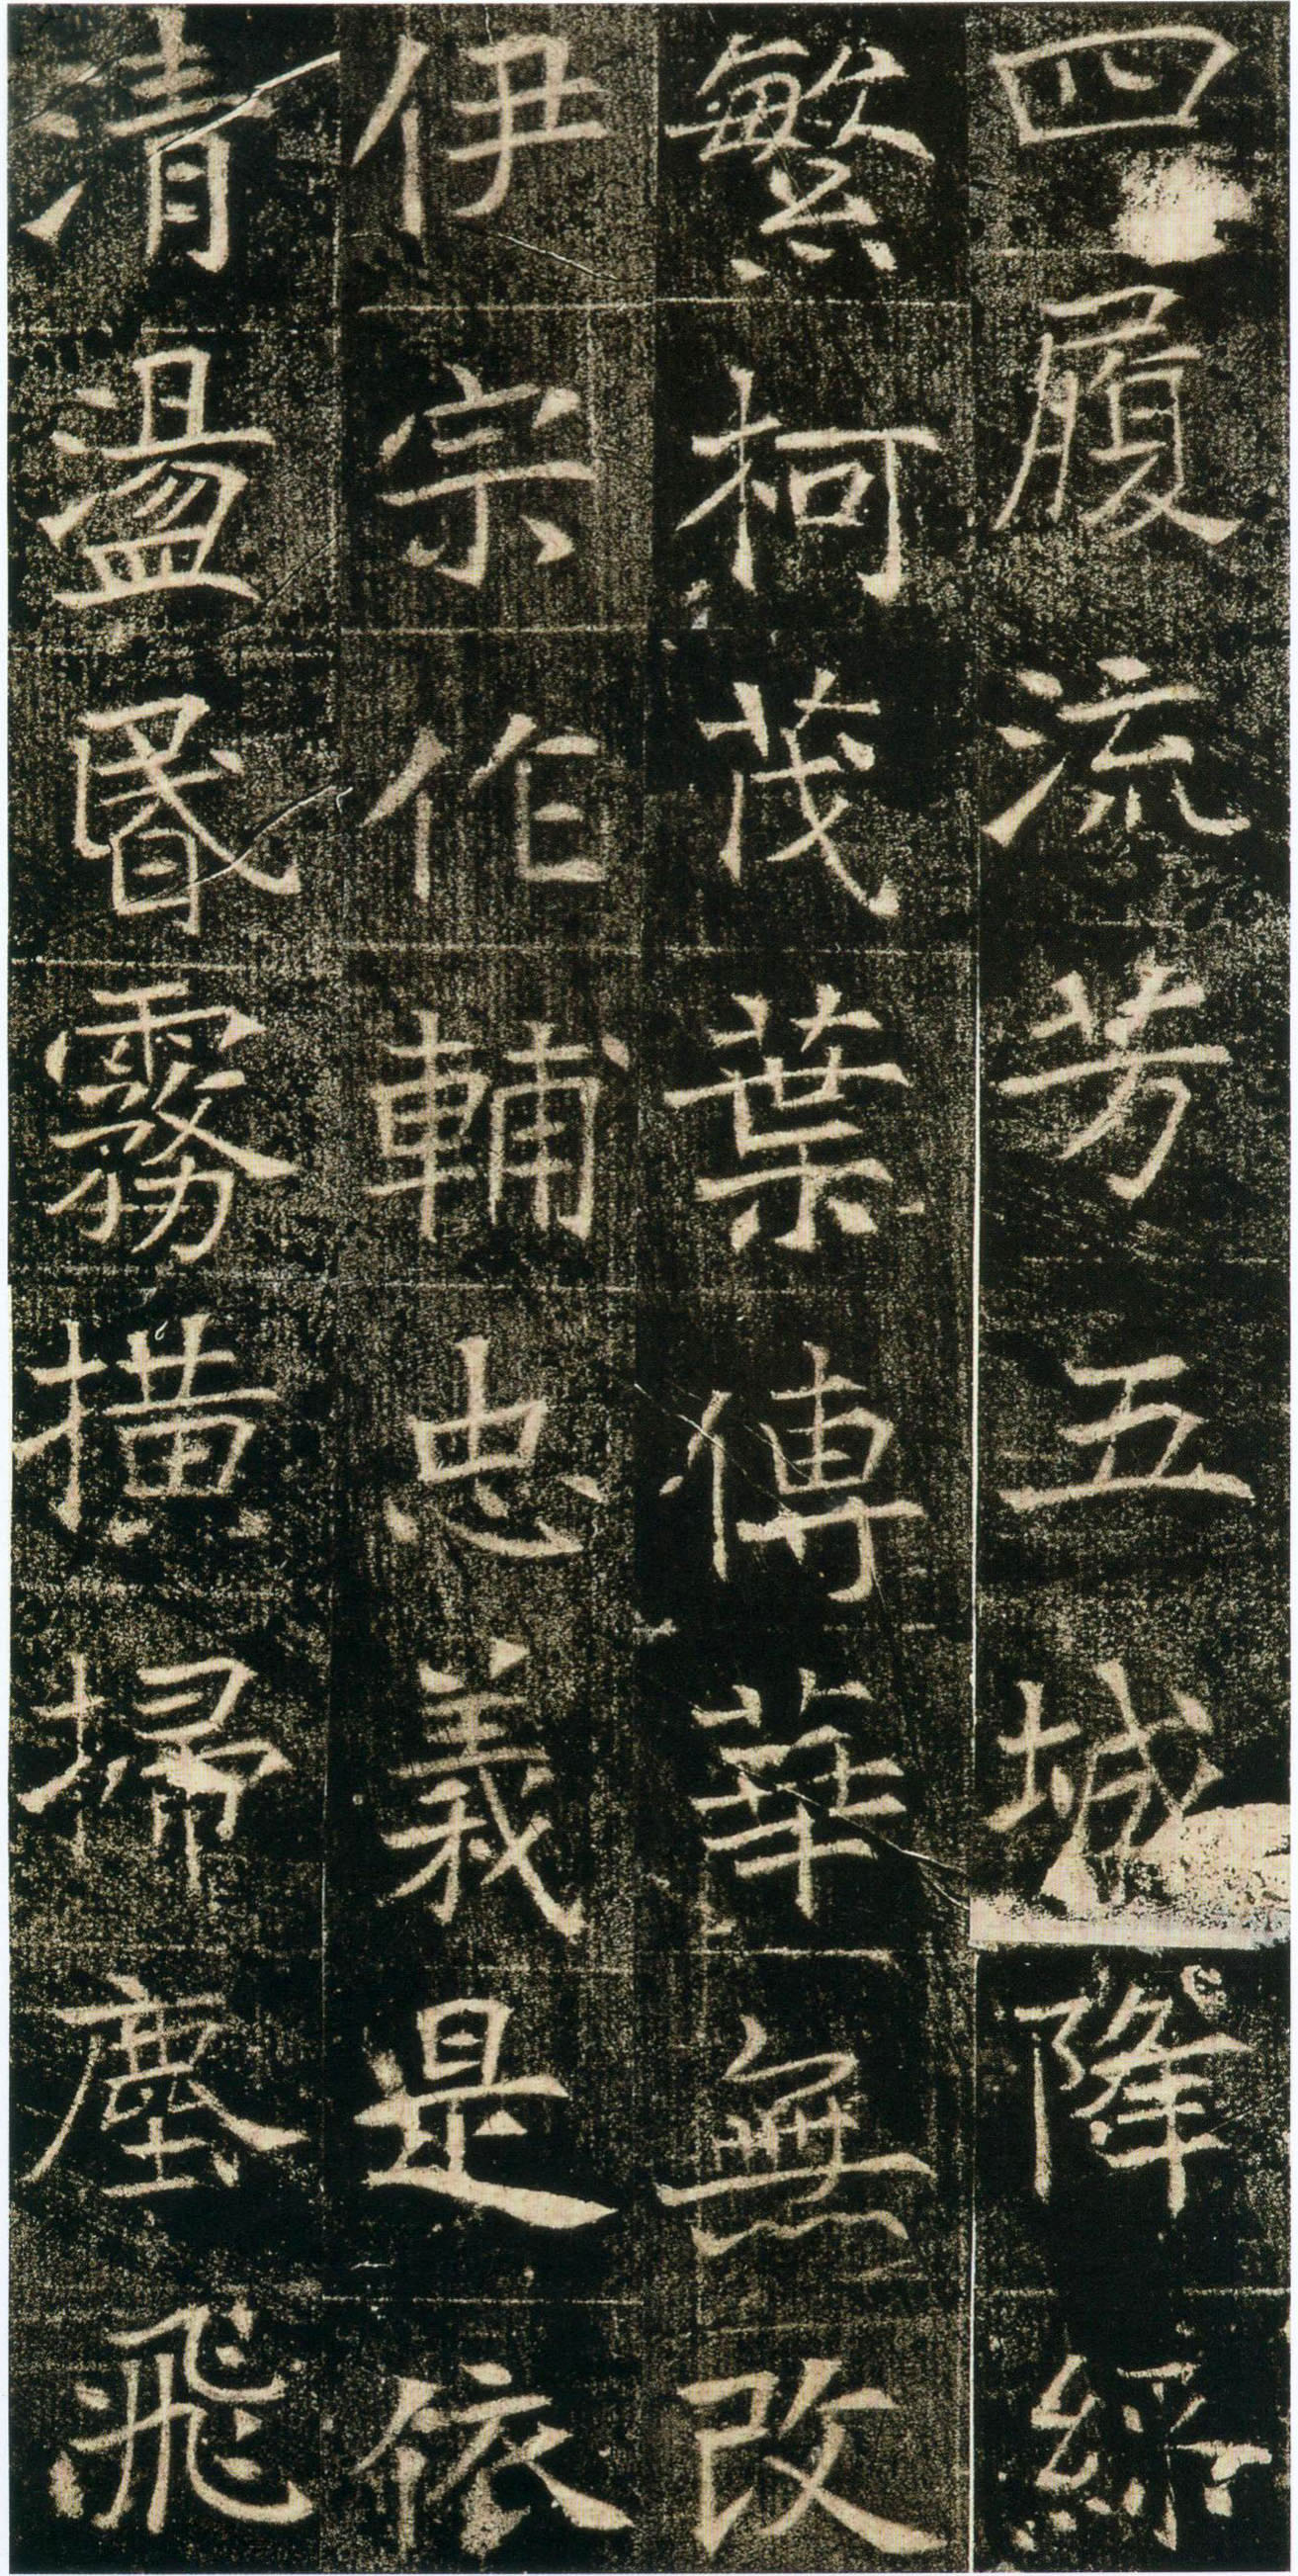 四履流芳五城降
繁柯茂葉傳華無改
伊宗作輔忠義是依
清盪昬霧撗埽塵飛